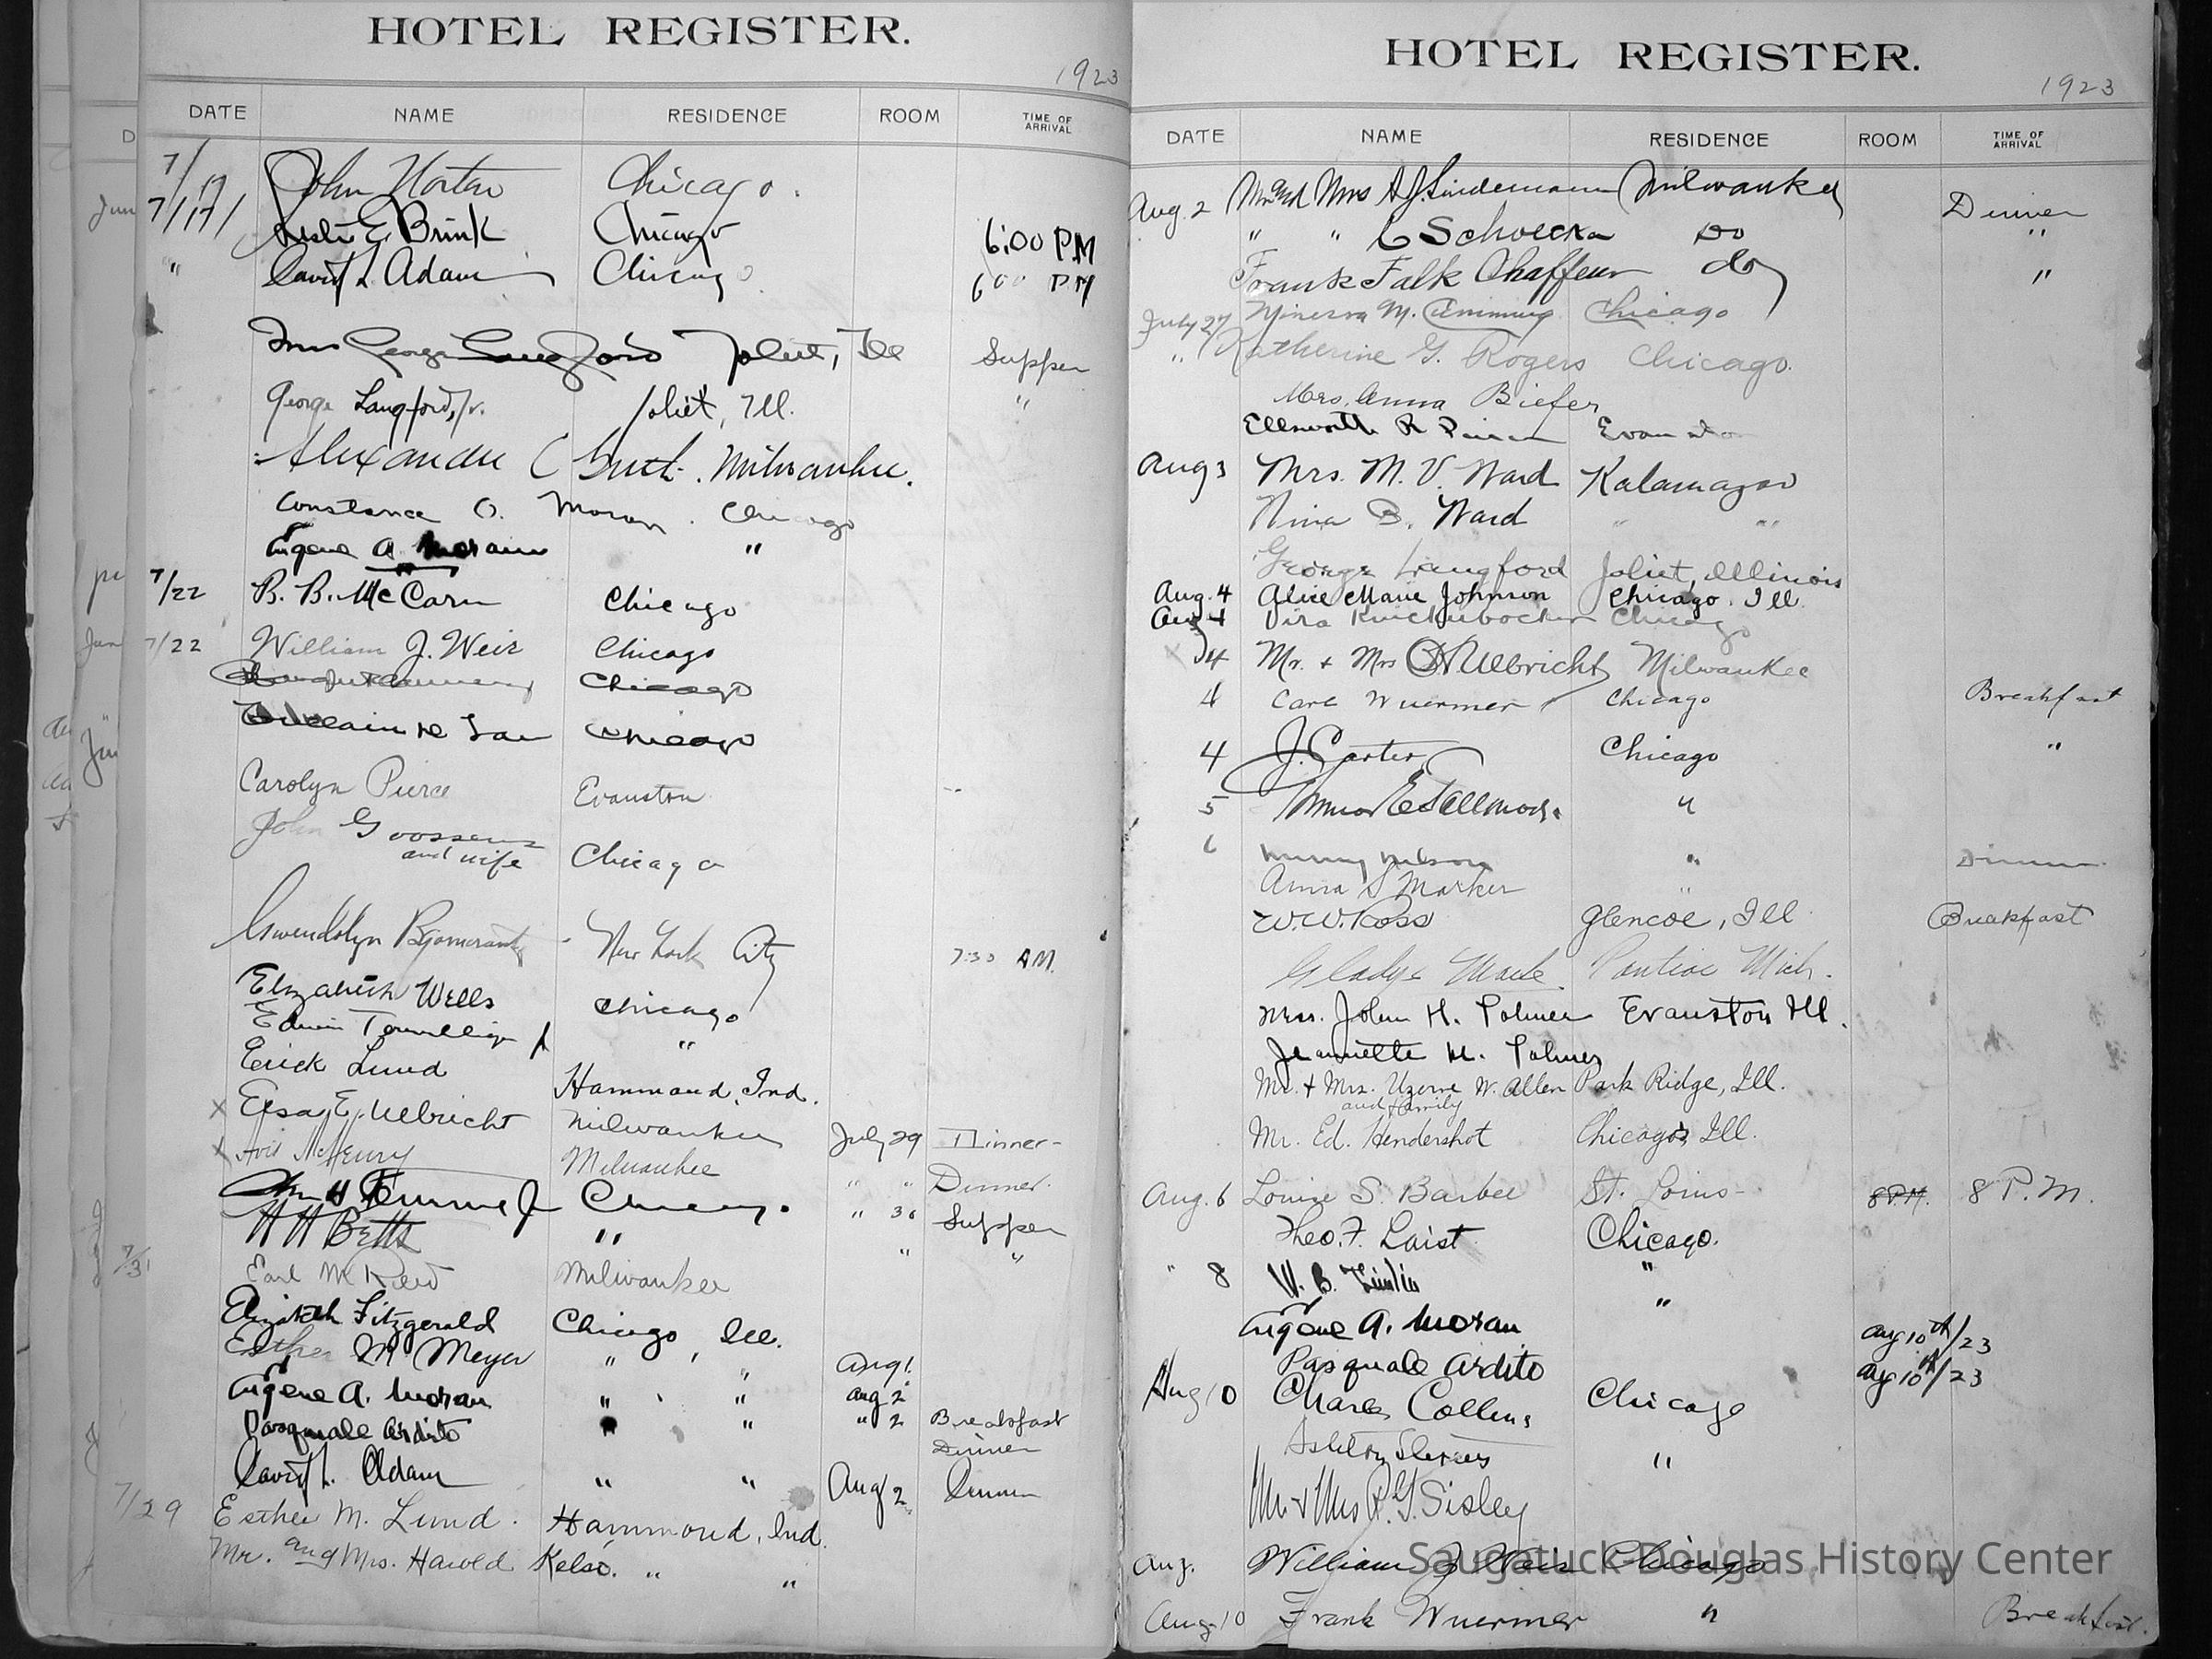 HOTEL REGISTER.
1923
DATE NAME RESIDENCE ROOM TIME OF ARRIVAL
7/17 John Norton Chicago.
7/17/ Leslie E. Brink Chicago 6:00 PM
" David L. Adam Chicago 6 00 PM
Mrs George Langford Joliet, Ill Supper
George Langford, Jr. Joliet, Ill. "
Alexander C Milwaukee.
Constance O. Moran. Chicago
Eugene A. Moran "
7/22 B. B. McCarn Chicago
7/22 William J. Weir Chicago
Chicago
Chicago
Carolyn Pierce Evanston
John Goossens
and wife Chicago
Gwendolyn New York City 7:30 AM.
Elizabeth Wells Chicago
Edwin "
Erick Lund Hammond, Ind.
X Elsa E. Ulbricht Milwaukee July 29 Dinner-
X Avis McHenry Milwaukee " " Dinner.
Chicago. " 30 Supper
H H Betts " " "
7/31 Earl Reed Milwaukee
Elizabeth Fitzgerald Chicago, Ill.
Esther M Meyer " , " Aug 1.
Eugene A. Moran " " Aug 2
Pasquale Ardito " " 2 Breakfast
Dinner
David L. Adam " " Aug 2 Dinner
7/29 Esther M. Lund. Hammond, Ind.
Mr. and Mrs. Harold Kelso. " "
HOTEL REGISTER.
1923
DATE NAME RESIDENCE ROOM TIME OF ARRIVAL
Aug. 2 Mr and Mrs A. J. Lindemann Milwaukee Dinner
" " Do "
Frank Falk Chaffeur do "
July 27 Minerva M. Chicago
" Katherine G. Rogers Chicago.
Mrs. Anna Biefer
Ellsworth R Evanston
Aug 3 Mrs. M. V. Ward Kalamazoo
Nina B. Ward " "
George Langford Joliet, Illinois
Aug. 4 Alice Marie Johnson Chicago. Ill.
Aug 4 Vira Knickerbocker Chicago
X 4 Mr. + Mrs Ulbricht Milwaukee
4 Carl Wuermer Chicago Breakfast
4 J. Carter Chicago "
5 "
6 " Dinner
Anna S Marker "
W. W. Ross Glencoe, Ill Breakfast
Gladys Pontiac Mich.
Mrs. John H. Palmer Evanston Ill.
Jeannette H. Palmer
Mr. + Mrs. Uzerne W. Allen Park Ridge, Ill.
and family
Mr. Ed. Hendershot Chicago, Ill.
Aug. 6 Louise S. Barbee St. Louis- 8 P.M. 8 P.M.
Theo. F. Laist Chicago.
" 8 W. B. "
Eugene A. Moran " Aug 10th/23
Pasquale Ardito Aug 10th/23
Aug 10 Charles Collins Chicago
Ashton Stevens "
Mr + Mrs R. G. Sisley
Aug. William J Weir Chicago
Aug. 10 Frank Wuermer " Breakfast.
Saugatuck-Douglas History Center